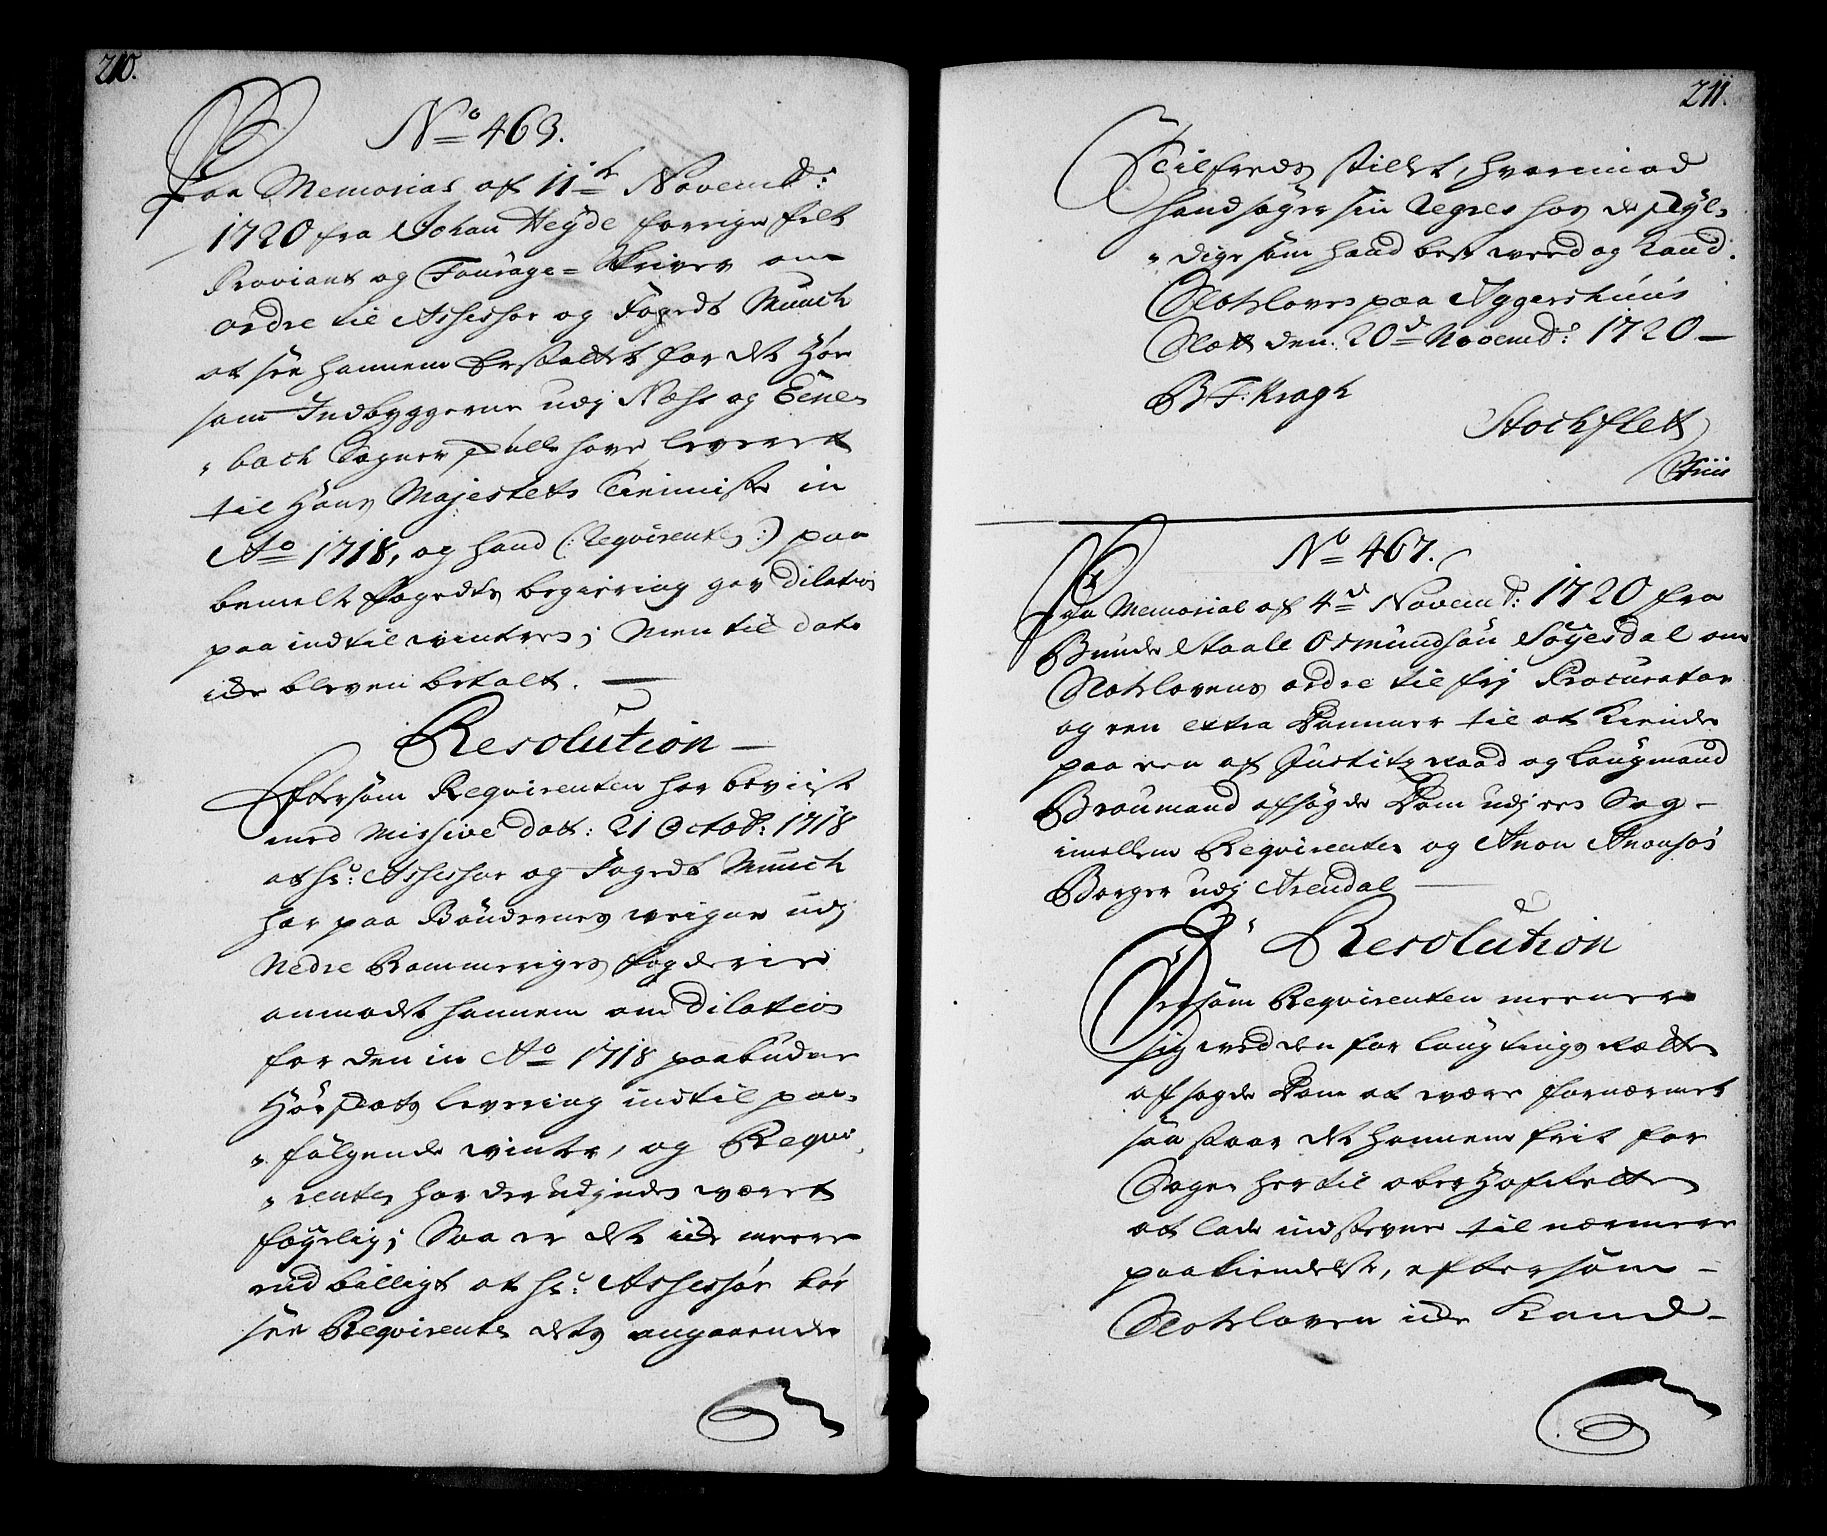 210.
No 463.
Paa Memorial af 11te Novembr:
1720 fra Johan Heyde forrige felt
Proviant og Fourage-Skriver om
ordre til Assessor og Fogedt Munch
at see hannem betalt for det Høe
som Indbyggerne udj Næss og Eene-
"bach Sogner skulle have leveret
til Hans Majestets tienniste in
Ao 1718, og hand (: Reqvirenten :) paa
bemelte fogeds begiering gav dilation
paa indtil vinteren; Men til dato
icke bleven betalt. —
Resolution —
Eftersom Reqvirenten har bevist
med Missive dat: 21 Octob: 1718
at Hr: Assessor og Fogedt Munch
har paa Bøndernes veigne udj
Nedre Rommeriges fogderie
anmodet hannem om dilation
for den in Ao 1718 paabudne
Høe skats levering indtil paa-
"følgende vinter, og Reqvi-
"renten har derudjnden været
føyelig; Saa er det icke meere
end billigt at Hr: Assessor bør
see Reqvirenten dets angaaende
211.
tilfreds stillet, hvorimod
hand søger sin Regres hos de skyl-
"dige som hand best veed og kand.
Slotsloven paa Aggershuus
Slott den 20de Novembr: 1720 —
B F: Kragh
Stochflett
Friis
No 467.
Paa Memorial af 4de Novemb: 1720 fra
Bunde Staale Osmundsøn Søyesdal om
Slotslovens ordre til frj Procurator
og een extra Dommer til at kiende
paa een af Justitz raad og Laugmand
Broumand afsagde Dom udj een Sag —
imellem Reqvirenten og Anon Anonsøn
Borger udj Arendal —
Resolution
Dersom Reqvirenten meener
sig ved den for Laugtings retten
afsagde Dom at være fornærmet
saa staar det hannem frit for
Sagen her til ober Hofretten
at lade indstevne til nærmere
paakiendelse, eftersom —
Slotsloven icke kand —